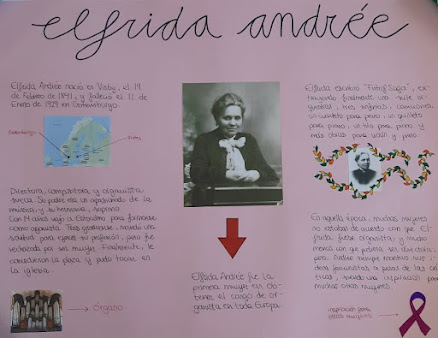 elfrida andrée
Elfrida Andrée nació en Visby, el 19
de Febrero de 1841, y falleció el 11 de
Enero de 1929 en Gotemburgo.
Gotemburgo
Visby
Directora, compositora y organista
sueca. Su padre era un apasionado de la
música, y su hermana, soprano.
Con 14 años viajó a Estocolmo para formarse
como organista. Tras graduarse,
para ejercer su profesión, pero fue
rechazada por ser mujer. Finalmente, le
concedieron la plaza y pudo tocar en
la iglesia.
Órgano
Elfrida Andrée fue la
primera mujer en ob-
tener el cargo de or-
ganista en toda Europa.
Elfrida Andrée escribió "Fritiof Saga", ex-
trayendo finalmente una suite or-
questal, tres sinfonías,
un cuarteto para piano, un quinteto
para piano, un trío para piano y
más obras para violín y piano.
En aquella época, muchas mujeres
no estaban de acuerdo con que El-
frida fuese organista, y mucho
menos con que pudiera ser directora,
pero Andrée siempre mostró sus i-
deas feministas a pesar de las crí-
ticas, siendo una inspiración para
muchas otras mujeres.
inspiración para
otras mujeres